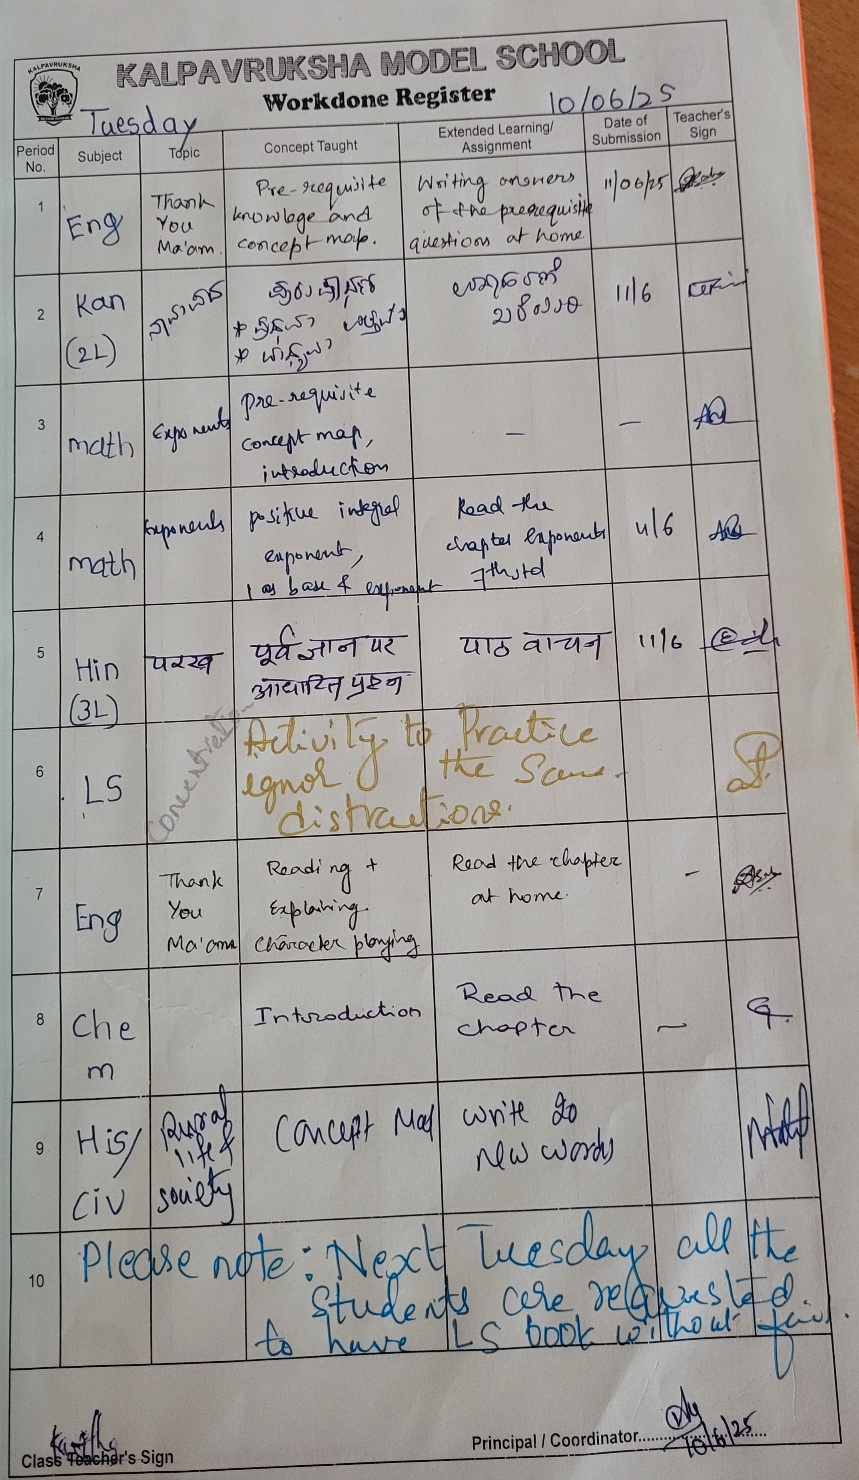 KALPAVRUKSHA
KALPAVRUKSHA MODEL SCHOOL
Workdone Register
Tuesday
10/06/25
Period No.
Subject
Topic
Concept Taught
Extended Learning/
Assignment
Date of
Submission
Teacher's
Sign
1
Eng
Thank
You
Ma'am.
Pre-requisite
knowlege and
concept map.
Writing answers
of the prerequisite
questions at home.
11/06/25
2
Kan
(2L)
11/6
3
math
Exponents
pre-requisite
concept map,
introduction
–
–
4
math
Exponents
positive integral
exponent,
1 as base & exponent
Read the
chapter exponents
7th std
11/6
5
Hin
(3L)
परख
पूर्व ज्ञान पर
आधारित प्रश्न
पाठ वाचन
11/6
6
LS
Concentration
Activity to Practice
ignor the Same.
distractions.
7
Eng
Thank
You
Ma'am
Reading +
Explaining.
Character playing
Read the chapter
at home.
–
8
Che
m
Introduction
Read the
chapter
–
9
His/
Civ
Rural
life &
society
Concept Map
Write 20
new words
10
Please note: Next Tuesday all the
students are requested
to have LS book without fail.
Class Teacher's Sign
Principal / Coordinator
10/6/25